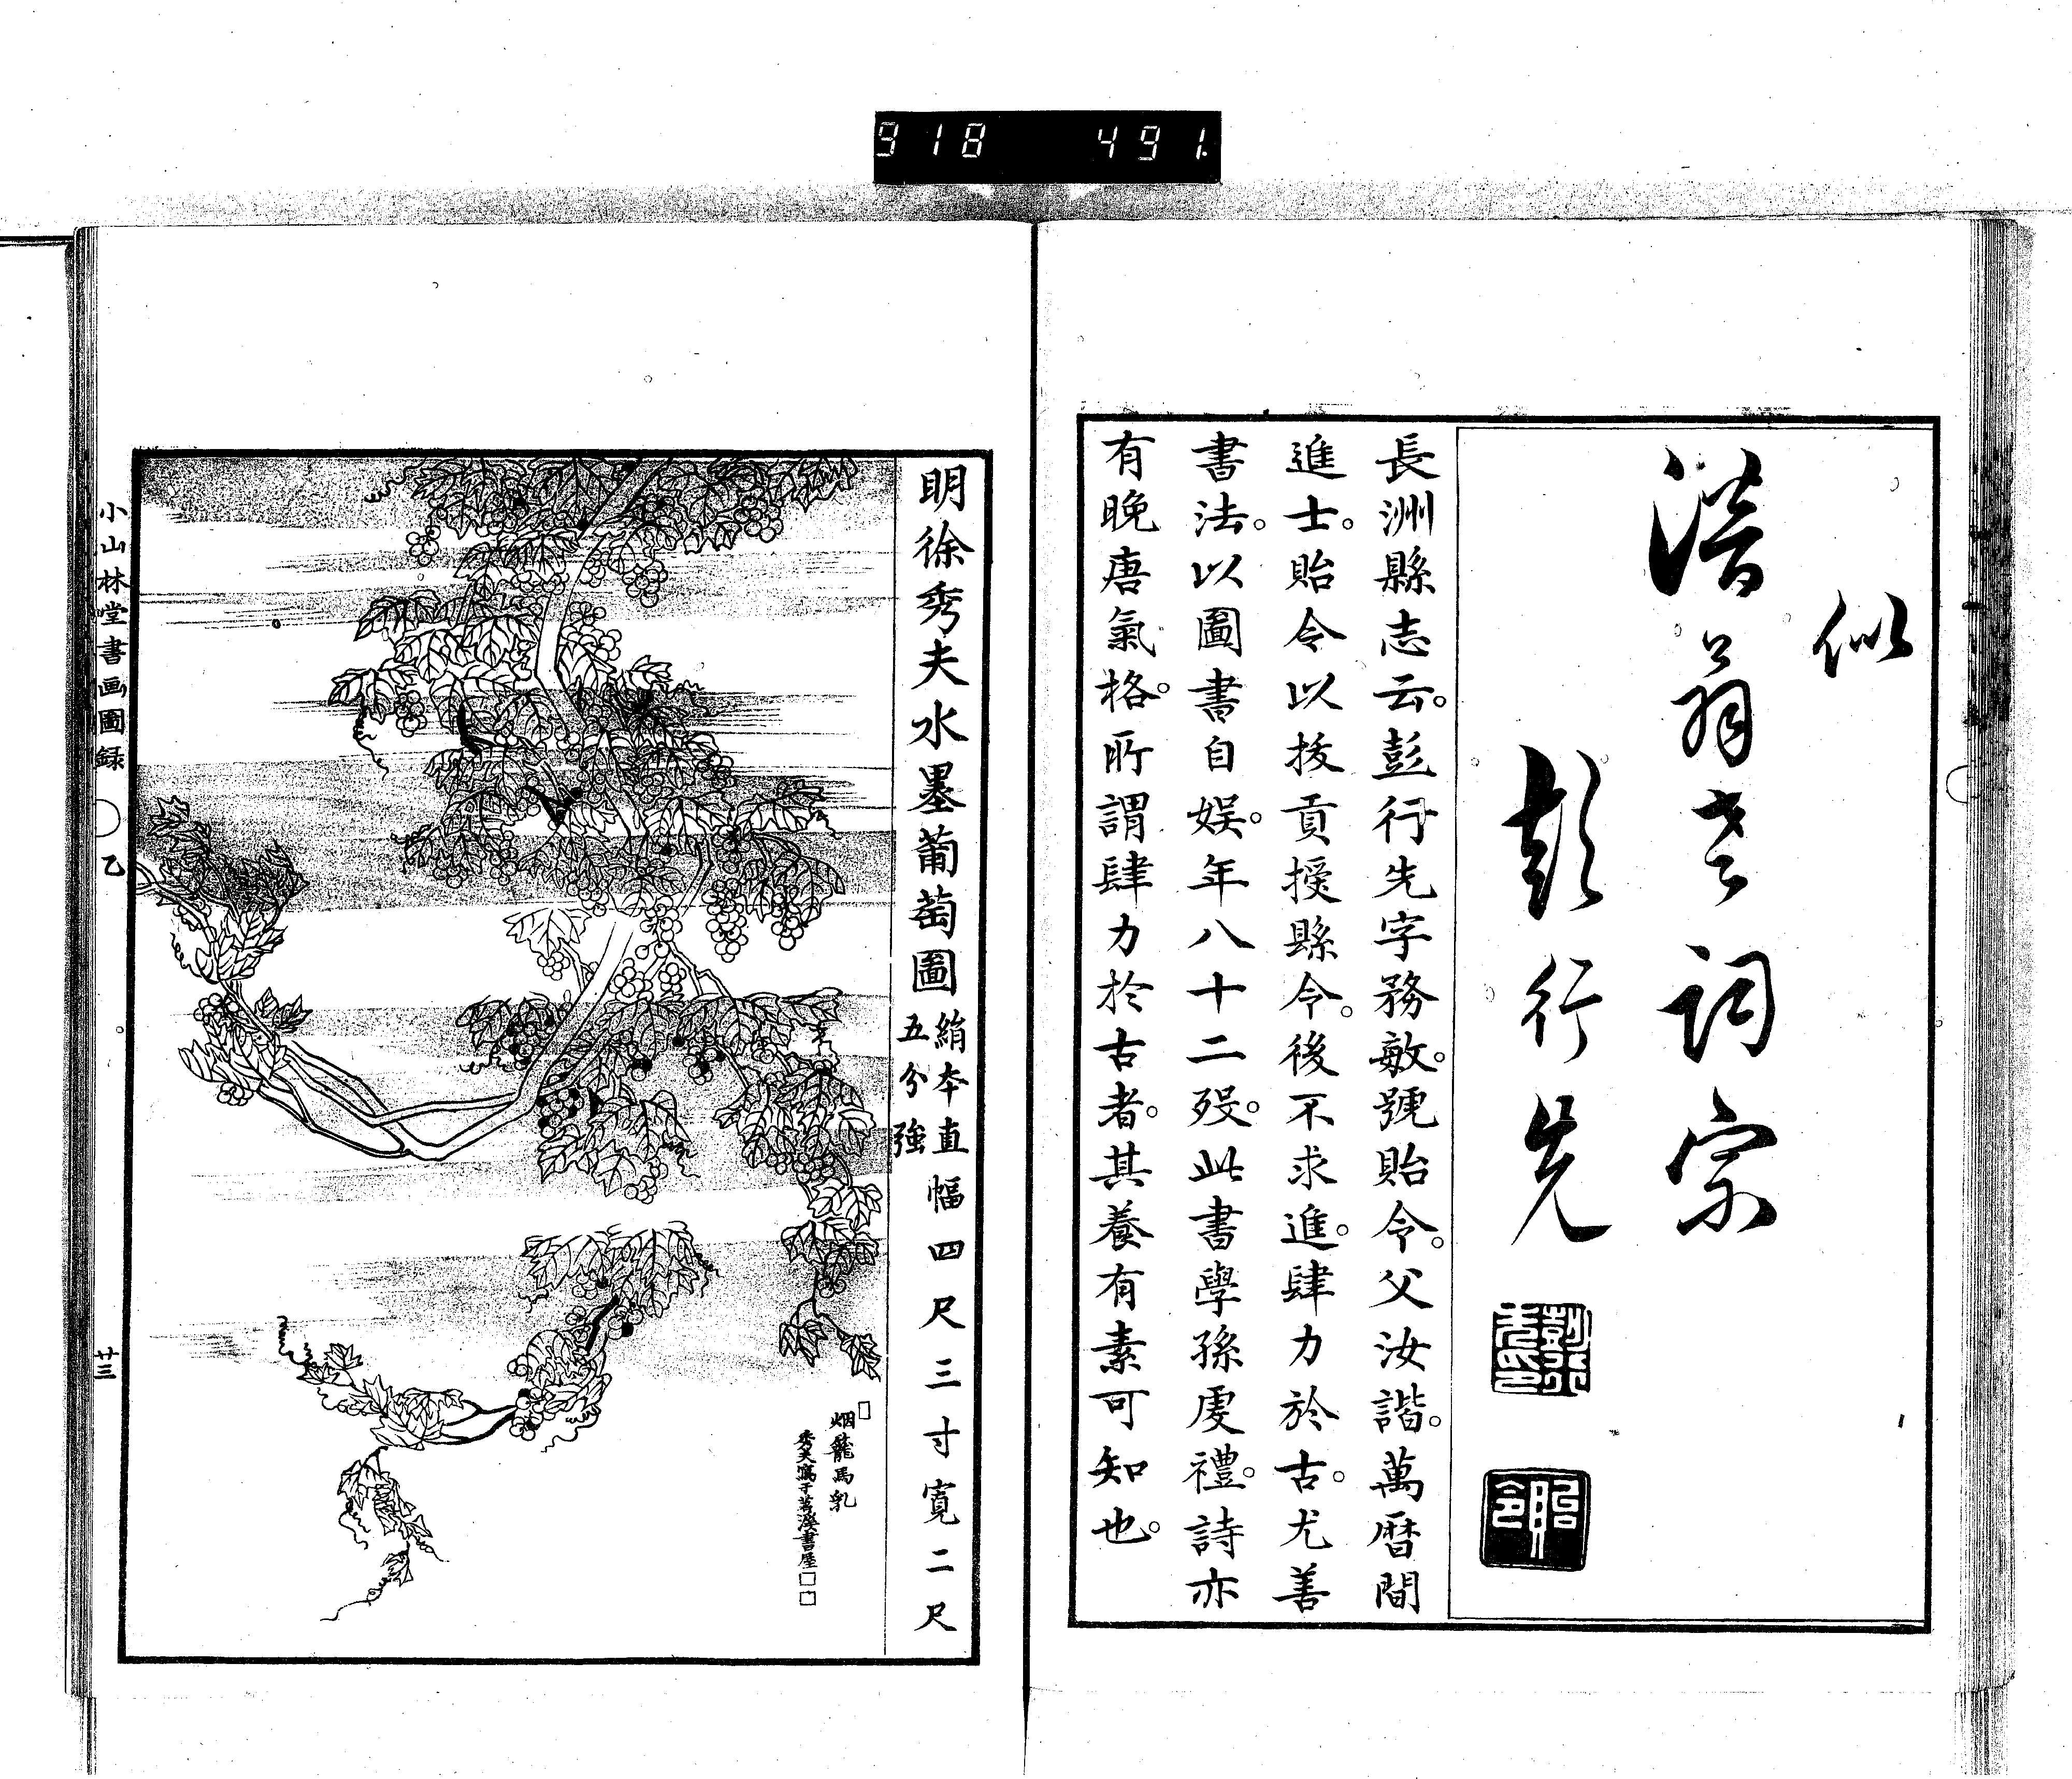 918 491
似
湝翁老詞宗
彭行先
彭行先印
貽令
長洲縣志云。彭行先字務敏。號貽令。父汝諧。萬暦間
進士。貽令以拔貢授縣令。後不求進。肆力於古。尤善
書法。以圖書自娛。年八十二歿。此書學孫虔禮。詩亦
有晚唐氣格。所謂肆力於古者。其養有素可知也。
明徐秀夫水墨葡萄圖
絹本直幅四尺三寸寬二尺
五分強
烟籠馬乳
秀夫寫于茗溪書屋
小山林堂書画圖録
乙
廿三